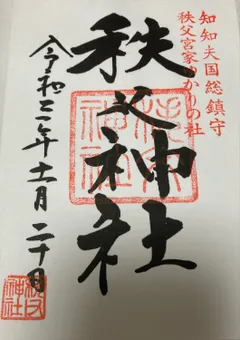 知知夫国総鎮守
秩父宮家ゆかりの社
秩父神社
令和二年十一月二十日
秩父
神社
秩父
神社